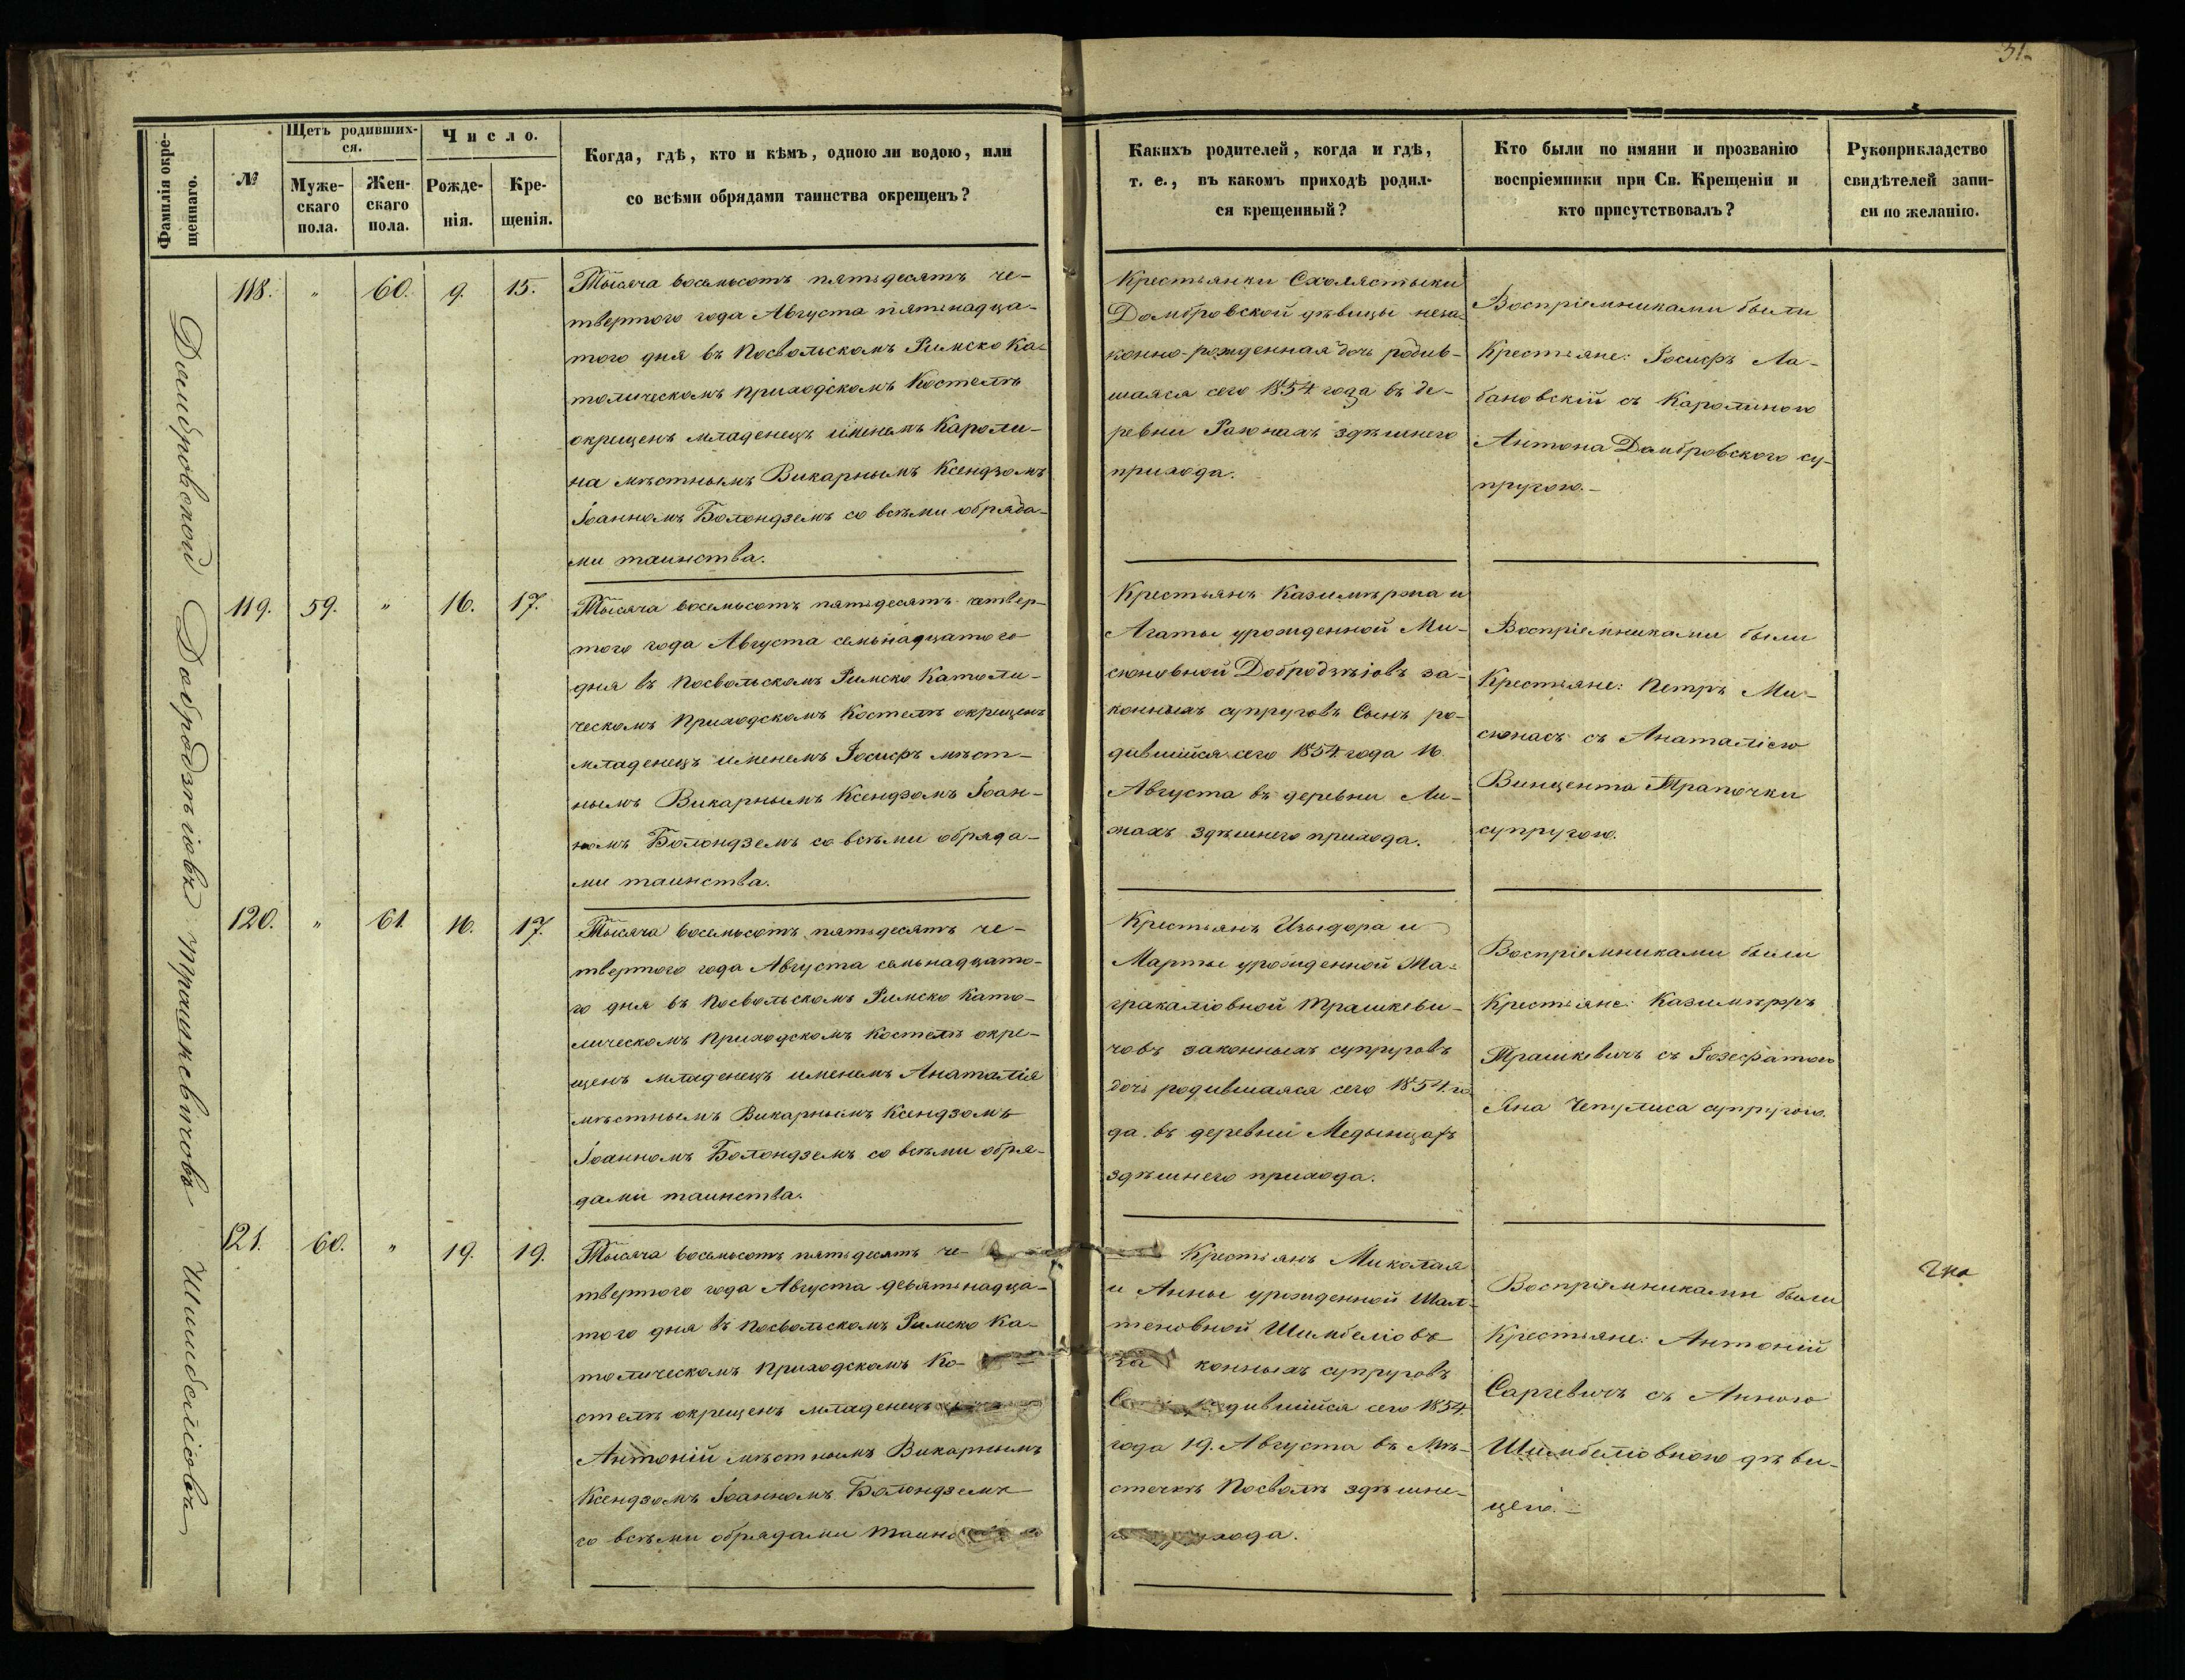 31.
Фамилія окре-
щеннаго.
№
Щетъ родивших-
ся.
Муже-
скаго
пола.
Жен-
скаго
пола.
Число.
Рожде-
нія.
Кре-
щенія.
Когда, гдѣ, кто и кѣмъ, одною ли водою, или
со всѣми обрядами таинства окрещенъ?
Какихъ родителей, когда и гдѣ,
т. е., въ какомъ приходѣ родил-
ся крещенный?
Кто были по имяни и прозванію
воспріемники при Св. Крещеніи и
кто присутствовалъ?
Рукоприкладство
свидѣтелей запи-
си по желанію.
Домбровской
118.
"
60.
9.
15.
Тысяча восемьсотъ пятьдесятъ че-
твертого года Августа пятьнадца-
того дня въ Посвольскомъ Римско Ка-
толическомъ приходскомъ Костелѣ
окрещенъ младенецъ именемъ Кароли-
на мѣстнымъ Викарнымъ Ксендзомъ
Іоанномъ Болондземъ со всѣми обряда-
ми таинства.
Крестьянки Схолястыки
Домбровской дѣвицы неза-
конно-рожденная дочь родив-
шаяся сего 1854 года въ де-
ревни Раюнахъ здѣшнего
прихода.
Воспріемниками были
Крестьяне: Іосифъ Ла-
бановскій съ Каролиною
Антона Домбровского су-
пругою.-
Добродзѣіовъ
119.
59.
"
16.
17.
Тысяча восемьсотъ пятьдесятъ четвер-
того года Августа семьнадцатого
дня въ Посвольскомъ Римско Католи-
ческомъ Приходскомъ Костелѣ окрещенъ
младенецъ именемъ Іосифъ мѣст-
нымъ Викарнымъ Ксендзомъ Іоан-
номъ Болондземъ со всѣми обряда-
ми таинства.
Крестьянъ Казимѣржа и
Агаты урожденной Ми-
сюновной Добродзѣіовъ за-
конныхъ супруговъ Сынъ ро-
дившійся сего 1854 года 16
Августа въ деревни Ли-
жахъ здѣшнего прихода.
Воспріемниками были
Крестьяне: Петръ Ми-
сюнасъ съ Анаталіею
Винцента Трапочки
супругою.
Трашкевичовъ
120.
"
61.
16.
17.
Тысяча восемьсотъ пятьдесятъ че-
твертого года Августа семьнадцато-
го дня въ Посвольскомъ Римско Като-
лическомъ Приходскомъ Костелѣ окре-
щенъ младенецъ именемъ Анаталія
мѣстнымъ Викарнымъ Ксендзомъ
Іоанномъ Болондземъ со всѣми обря-
дами таинства.
Крестьянъ Изыдора и
Марты урожденной
Трашкеви-
човъ законныхъ супруговъ
дочь родившаяся сего 1854. го-
да въ деревни Медынцахъ
здѣшнего прихода.
Воспріемниками были
Крестьяне: Казимѣржъ
Трашкевичъ съ Іозефатою
Яна Чепулиса супругою.
Шимбеліовъ
121.
60.
"
19.
19.
Тысяча восемьсотъ пятьдесятъ че-
твертого года Августа девятьнадца-
того дня въ Посвольскомъ Римско Ка-
толическомъ Приходскомъ Ко-
стелѣ окрещенъ младенецъ
Антоній мѣстнымъ Викарнымъ
Ксендзомъ Іоанномъ Болондземъ
со всѣми обрядами
Крестьянъ Миколая
и Анны урожденной Шал-
теновной Шимбеліовъ
за конныхъ супруговъ
дившійся сего 1854.
года 19. Августа въ Мѣ-
стечкѣ Посволѣ здѣшне-
хода.
Воспріемниками были
Крестьяне: Антоній
Саргевичъ съ Анною
Шимбеліовною дѣви-
цею.-